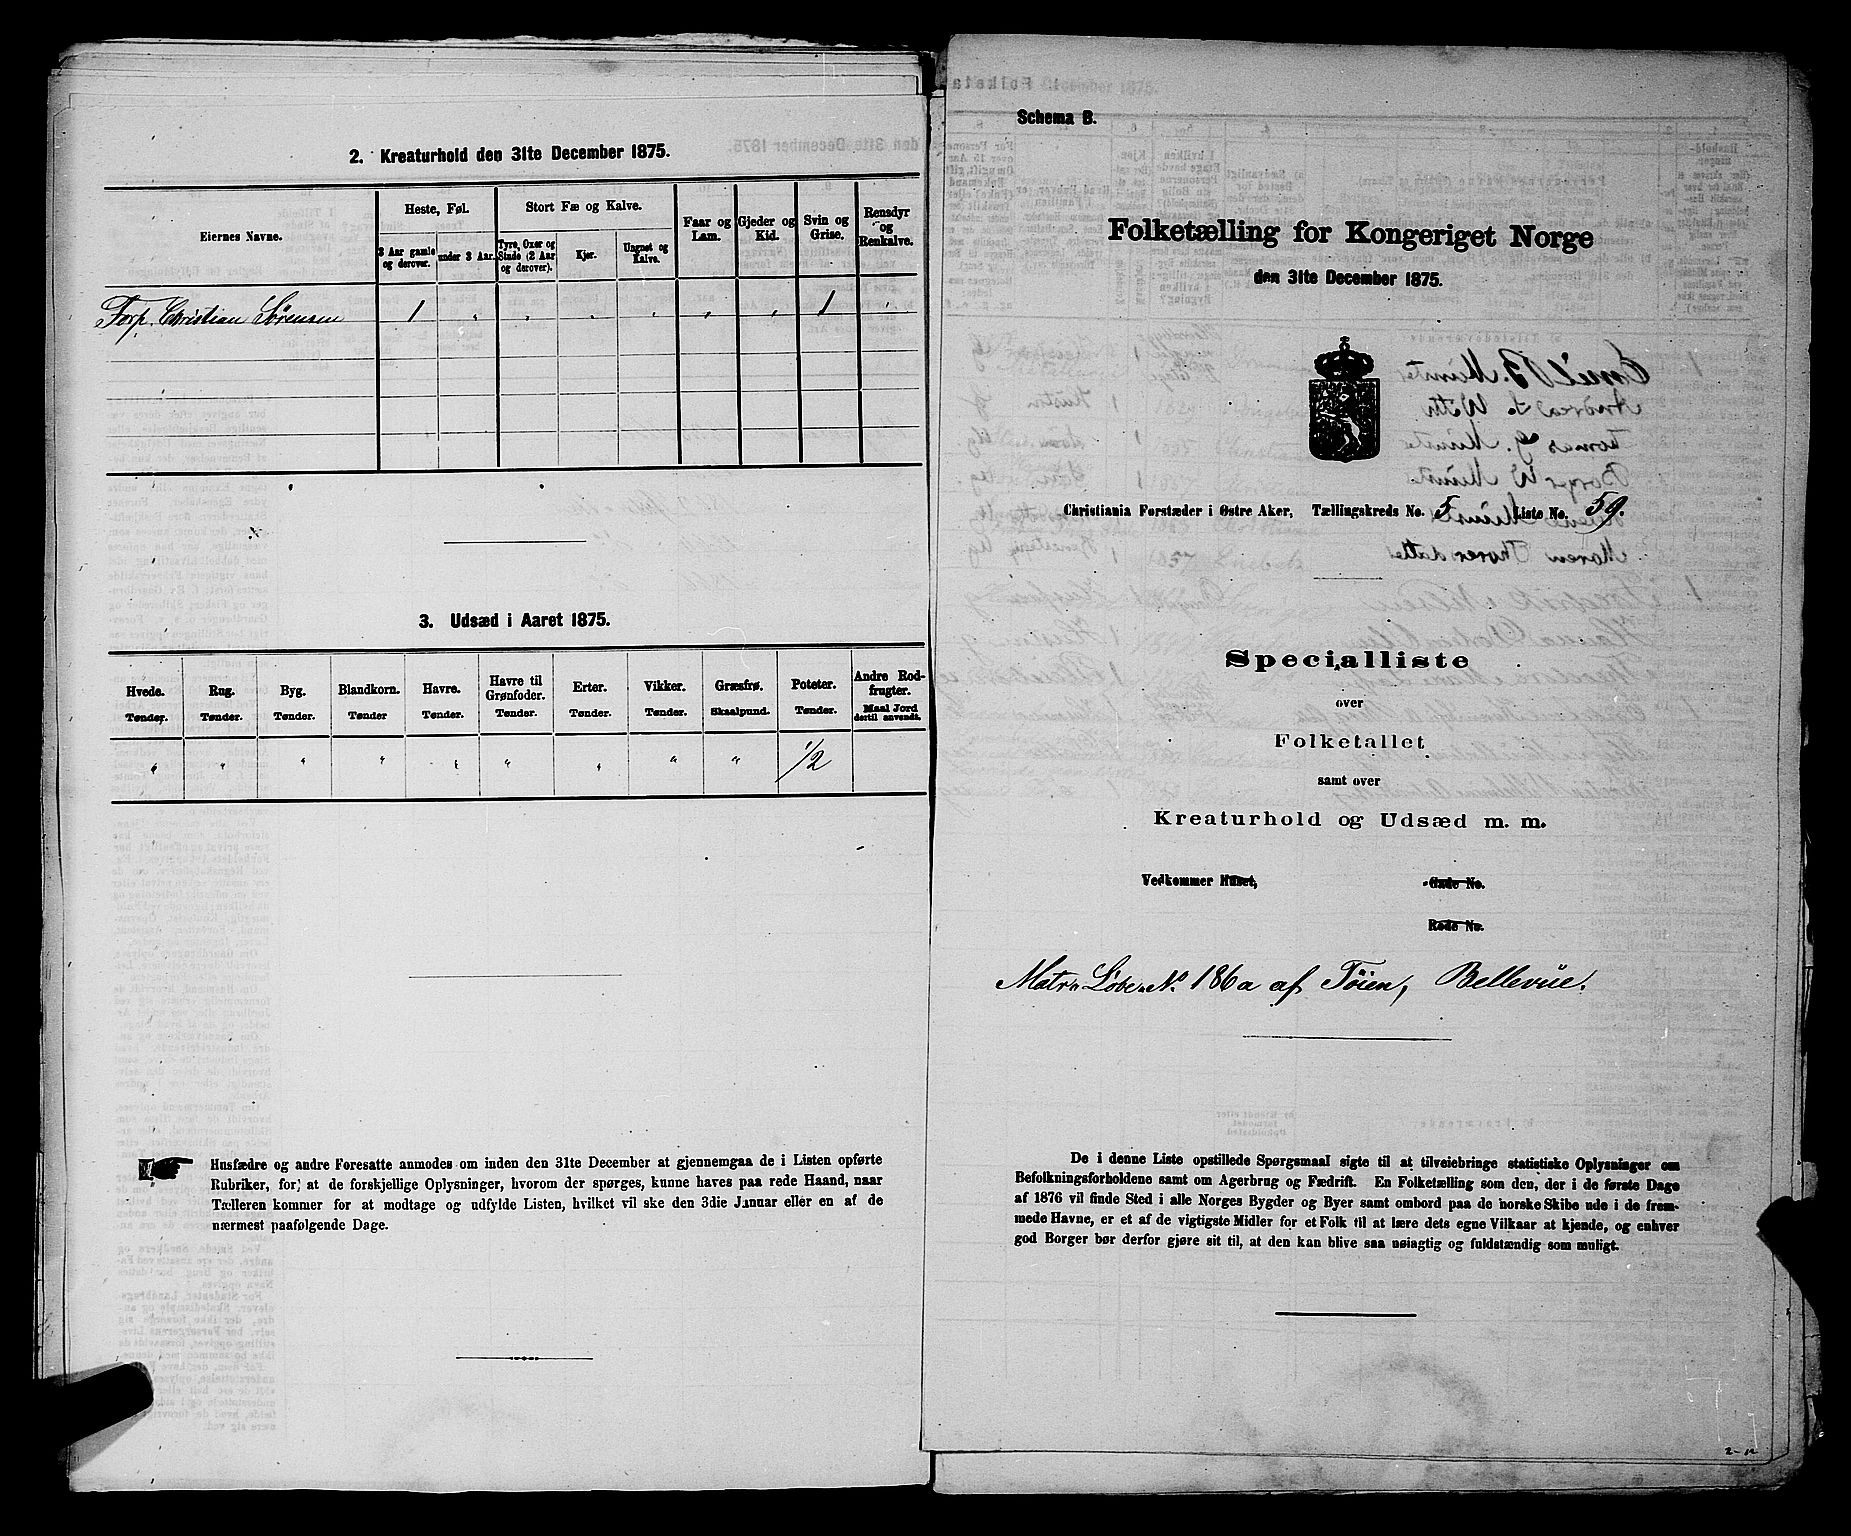 2. Kreaturhold den 31te December 1875.
Eiernes Navne.
Heste, Føl.
3 Aar gamle og derover.
under 3 Aar.
Stort Fæ og Kalve.
Tyre, Oxer og Stude (2 Aar og derover).
Kjør.
Ungnøt og Kalve.
Faar og Lam.
Gjeder og Kid.
Svin og Grise.
Rensdyr og Renkalve.
Torp. Christian Sørensen 1 " " " " " " 1 "
3. Udsæd i Aaret 1875.
Hvede. Tønder.
Rug. Tønder.
Byg. Tønder.
Blandkorn. Tønder
Havre. Tønder.
Havre til Grønfoder. Tønder.
Erter. Tønder.
Vikker. Tønder.
Græsfrø. Skaalpund.
Poteter. Tønder.
Andre Rodfrugter. Maal Jord dertil anvendt.
" " " " " " " " " 1/2
Husfædre og andre Foresatte anmodes om inden den 31te December at gjennemgaa de i Listen opførte
Rubriker, for at de forskjellige Oplysninger, hvorom der spørges, kunne haves paa rede Haand, naar
Tælleren kommer for at modtage og udfylde Listen, hvilket vil ske den 3die Januar eller en af de
nærmest paafølgende Dage.
Schema B.
Folketælling for Kongeriget Norge
den 31te December 1875.
Christiania Forstæder i Østre Aker, Tællingskreds No. 5 Liste No. 59.
Specialliste
over
Folketallet
samt over
Kreaturhold og Udsæd m. m.
Vedkommer Huset, Gade No.
Rode No.
Matr. Løbe No. 186a af Tøien, Bellevüe.
De i denne Liste opstillede Spørgsmaal sigte til at tilveiebringe statistiske Oplysninger om
Befolkningsforholdene samt om Agerbrug og Fædrift. En Folketælling som den, der i de første Dage
af 1876 vil finde Sted i alle Norges Bygder og Byer samt ombord paa de norske Skibe ude i de frem-
mede Havne, er et af de vigtigste Midler for et Folk til at lære dets egne Vilkaar at kjende, og enhver
god Borger bør derfor gjøre sit til, at den kan blive saa nøiagtig og fuldstændig som muligt.